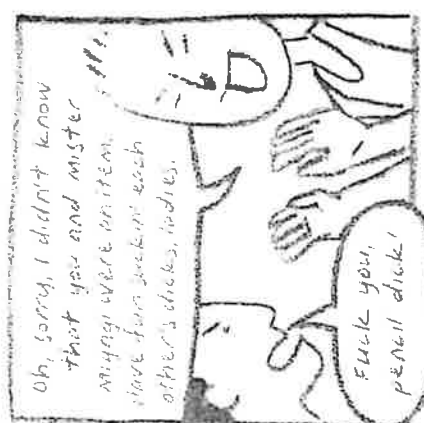 Oh, sorry, I didn't know
that you and mister
Miyagi were an item.
Have fun suckin' each
other's dicks, ladies.
Fuck you,
pencil dick!